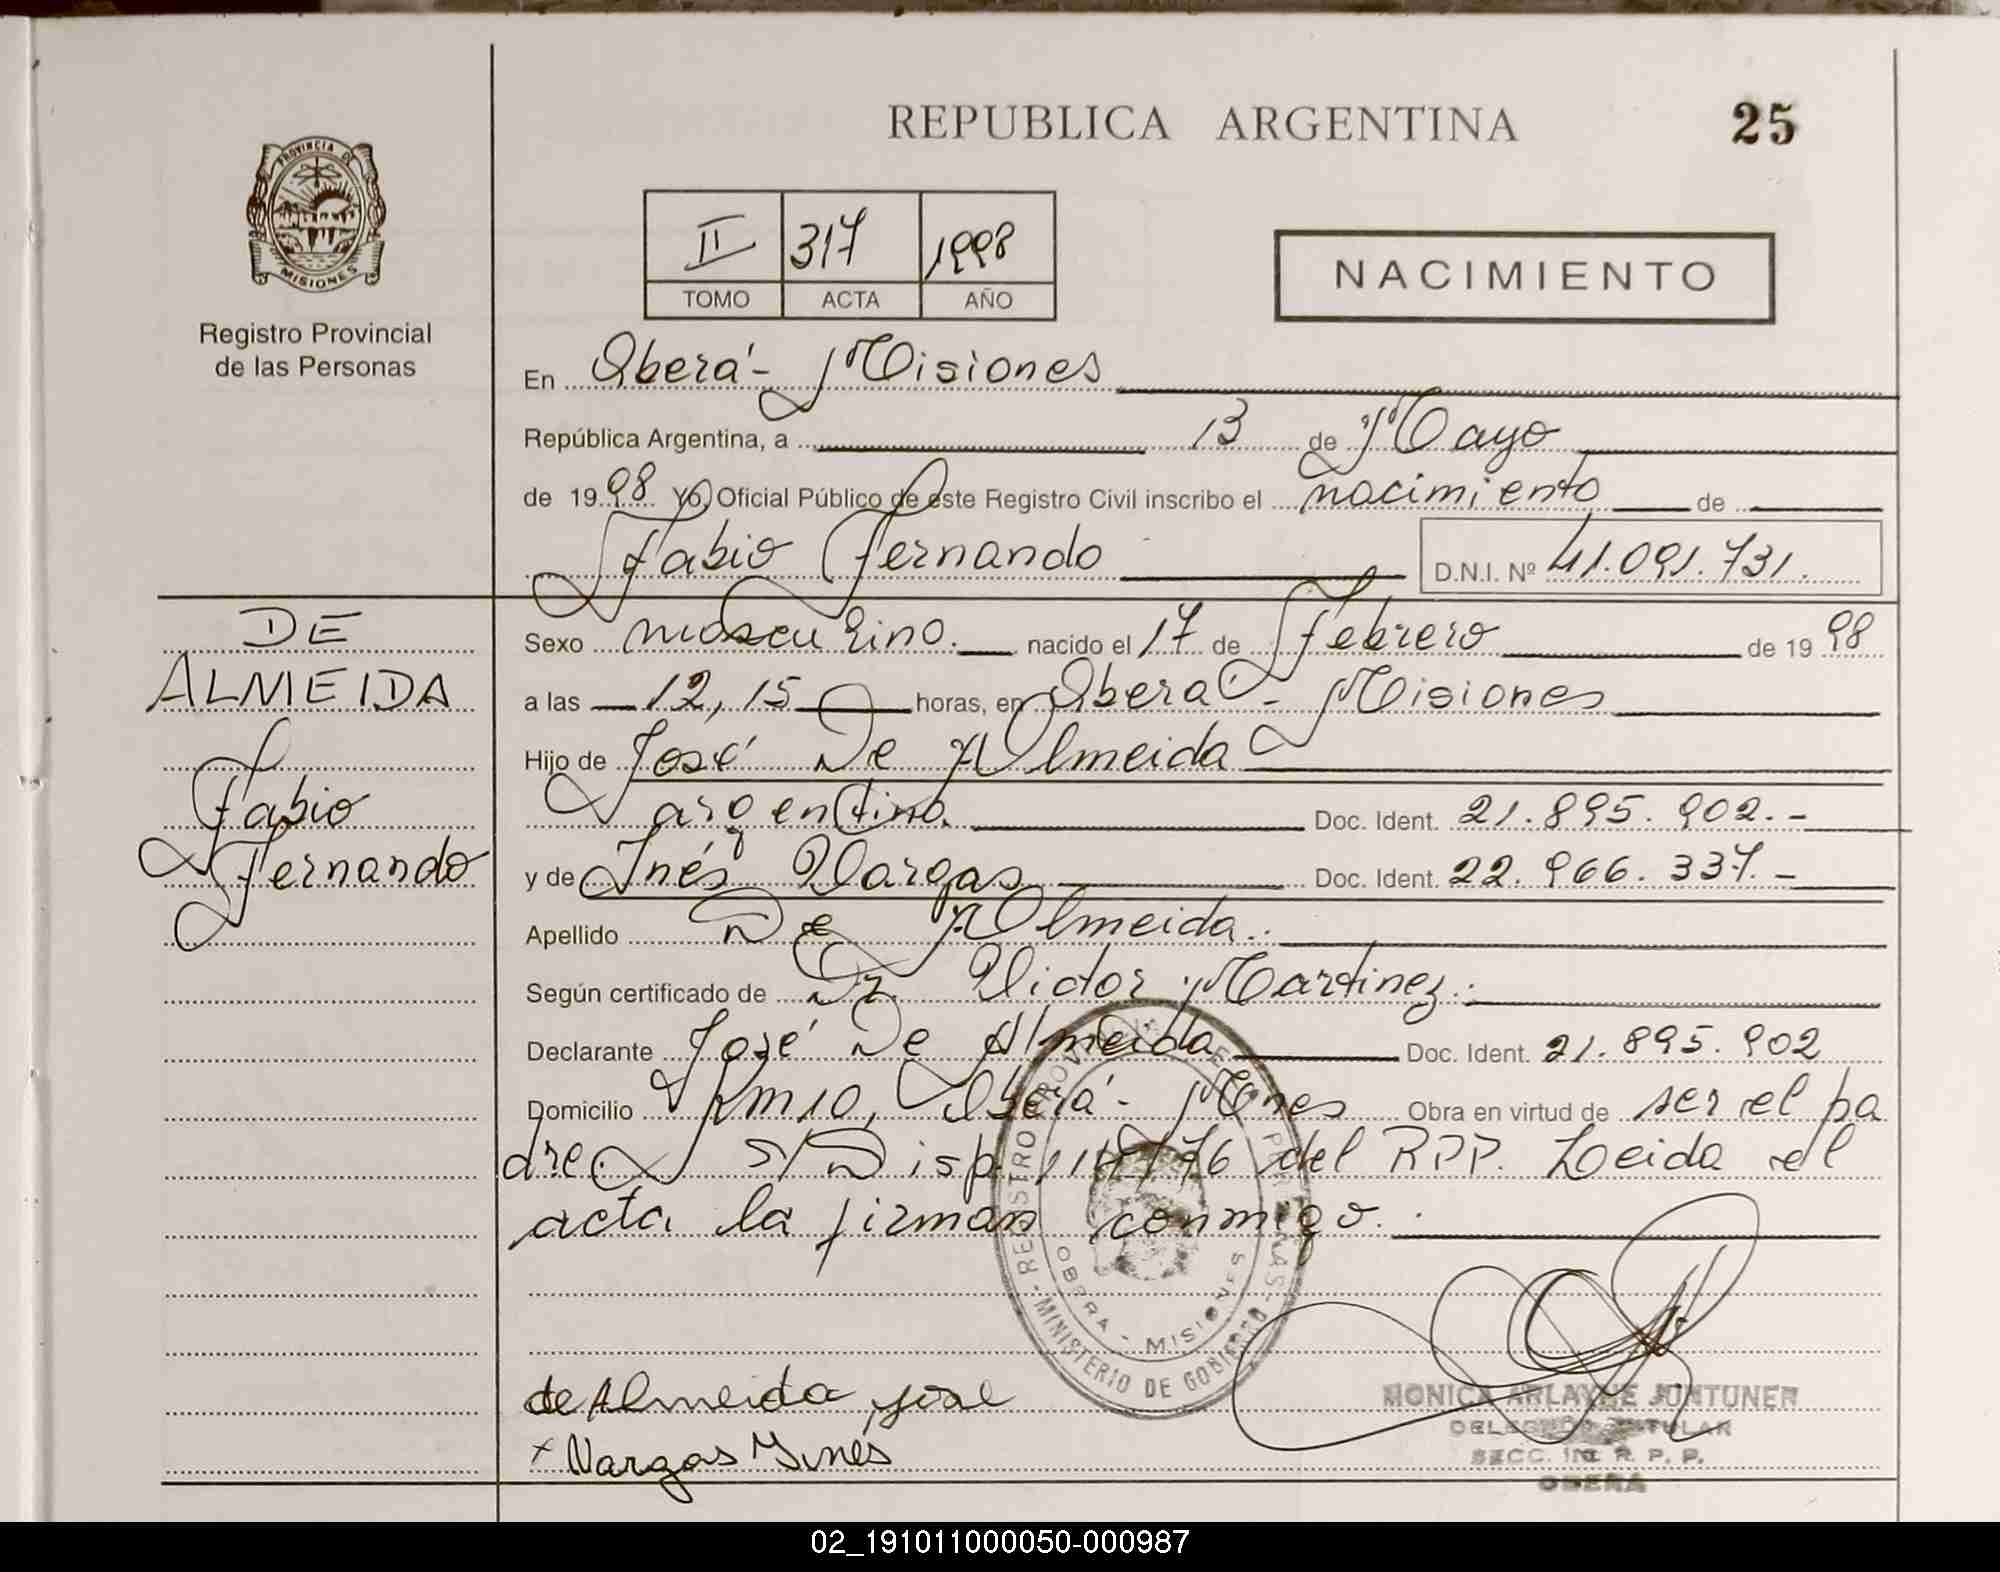 REPUBLICA ARGENTINA
25
PROVINCIA DE
MISIONES
Registro Provincial
de las Personas
II 317 1998
TOMO ACTA AÑO
NACIMIENTO
En Oberá - Misiones
República Argentina, a 13 de Mayo
de 1998 Yo, Oficial Público de este Registro Civil inscribo el nacimiento de
Fabio Fernando D.N.I. Nº 41.091.731.
DE
ALMEIDA
Fabio
Fernando
Sexo masculino. nacido el 17 de Febrero de 1998
a las 12,15 horas, en Oberá - Misiones
Hijo de José De Almeida
argentino. Doc. Ident. 21.895.902.-
y de Inés Vargas Doc. Ident. 22.966.337.-
Apellido De Almeida.
Según certificado de Dr. Victor Martinez.
Declarante José De Almeida Doc. Ident. 21.895.902
Domicilio Km 10, Oberá - Mnes Obra en virtud de ser el pa
dre. S/Disp. /76 del RPP. Leida el
acta la firman conmigo.
REGISTRO PROVINCIAL DE LAS PERSONAS - MINISTERIO DE GOBIERNO
OBERA - MISIONES
de Almeida, jose
x Vargas Ynés
MONICA ARLAYNE JUNTUNEN
DELEGADO TITULAR
SECC. R. P. P.
OBERA
02_191011000050-000987